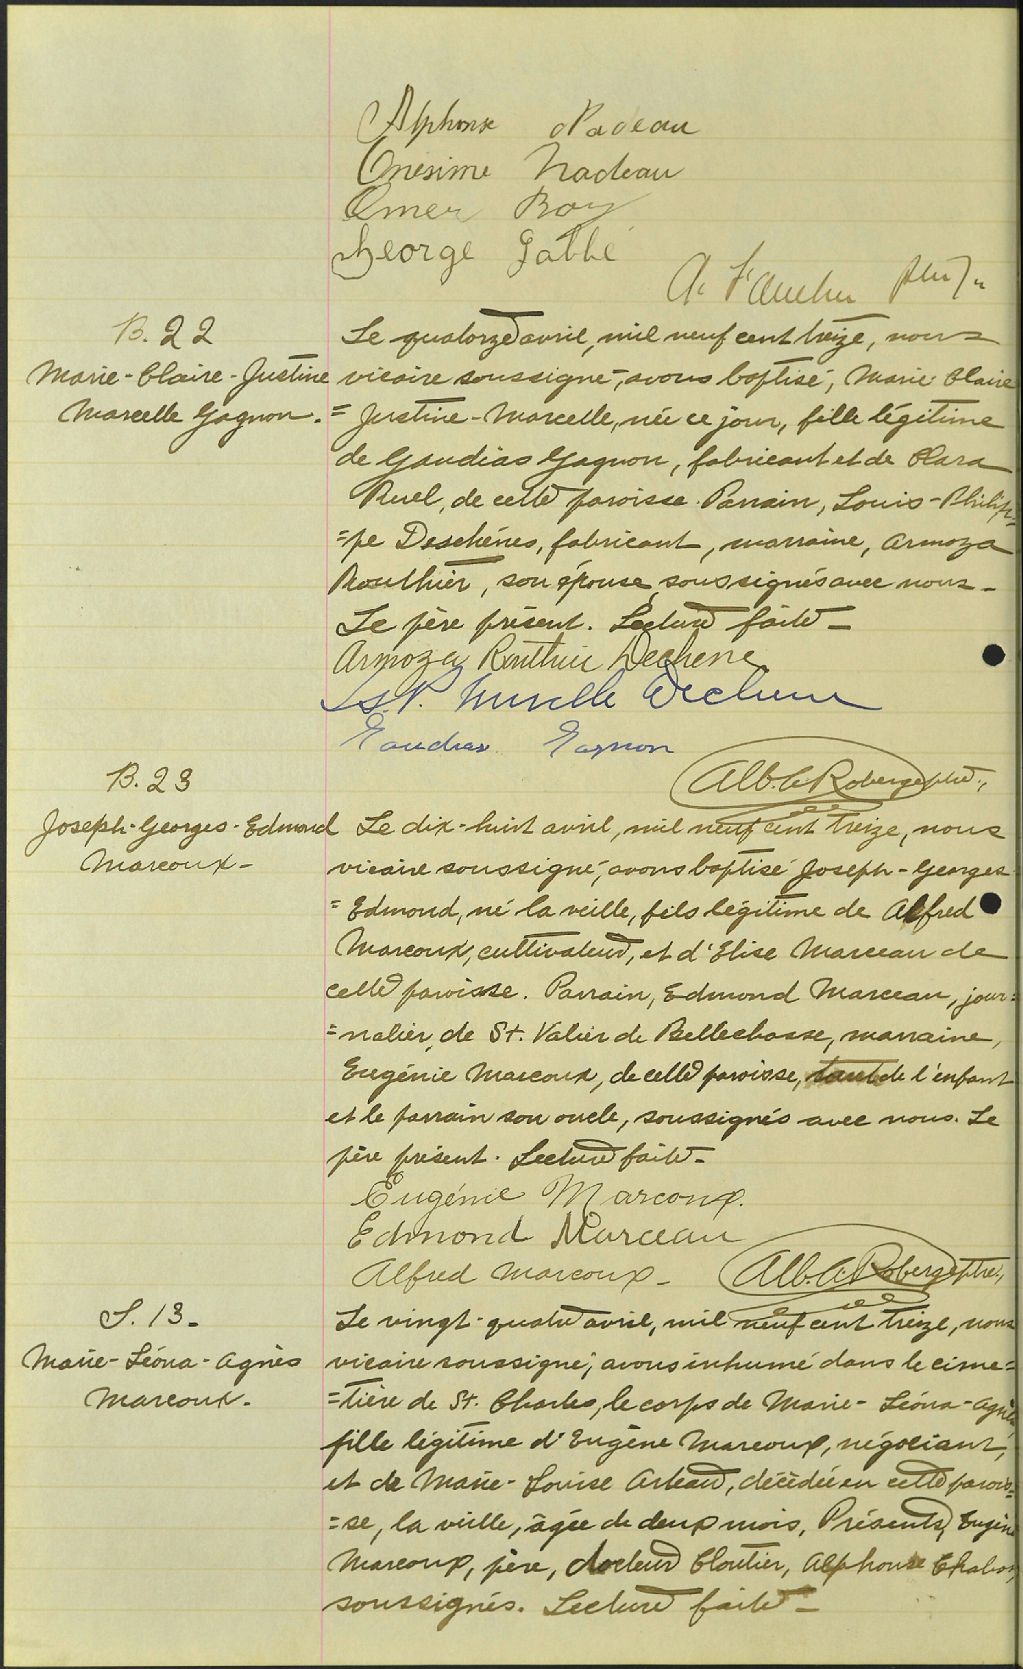 Alphonse Nadeau
Onésime Nadeau
Omer Roy
George Labbé
A. Faucher ptre
B. 22
Marie-Claire-Justine
Marcelle Gagnon.
Le quatorze avril, mil neuf cent treize, nous
vicaire soussigné, avons baptisé, Marie Claire
= Justine-Marcelle, née ce jour, fille légitime
de Gaudias Gagnon, fabricant et de Clara
Ruel, de cette paroisse. Parrain, Louis-Philip-
=pe Deschênes, fabricant, marraine, Armoza
Routhier, son épouse, soussignés avec nous-
Le père présent. Lecture faite-
Armoza Routhier Dechene
Ls. P. Dechene
Gaudias Gagnon
Alb. Roberge ptre.,
B. 23
Joseph-Georges-Edmond
Marcoux-
Le dix-huit avril, mil neuf cent treize, nous
vicaire soussigné, avons baptisé Joseph-Georges
= Edmond, né la veille, fils légitime de Alfred
Marcoux, cultivateur, et d'Elise Marceau de
cette paroisse. Parrain, Edmond Marceau, jour=
=nalier, de St. Valier de Bellechasse, marraine,
Eugénie Marcoux, de cette paroisse, tante de l'enfant
et le parrain son oncle, soussignés avec nous. Le
père présent. Lecture faite-
Eugénie Marcoux.
Edmond Marceau
Alfred Marcoux-
Alb. A. Roberge ptre.,
S. 13-
Marie-Léona-Agnès
Marcoux.
Le vingt-quatre avril, mil neuf cent treize, nous
vicaire soussigné, avons inhumé dans le cime=
=tière de St. Charles, le corps de Marie-Léona-Agnès
fille légitime d'Eugène Marcoux, négociant,
et de Marie-Louise Asteaud, décédée en cette parois=
=se, la veille, âgée de deux mois, Présents, Eugène
Marcoux, père, docteur Cloutier, Alphonse Chabot,
soussignés. Lecture faite-